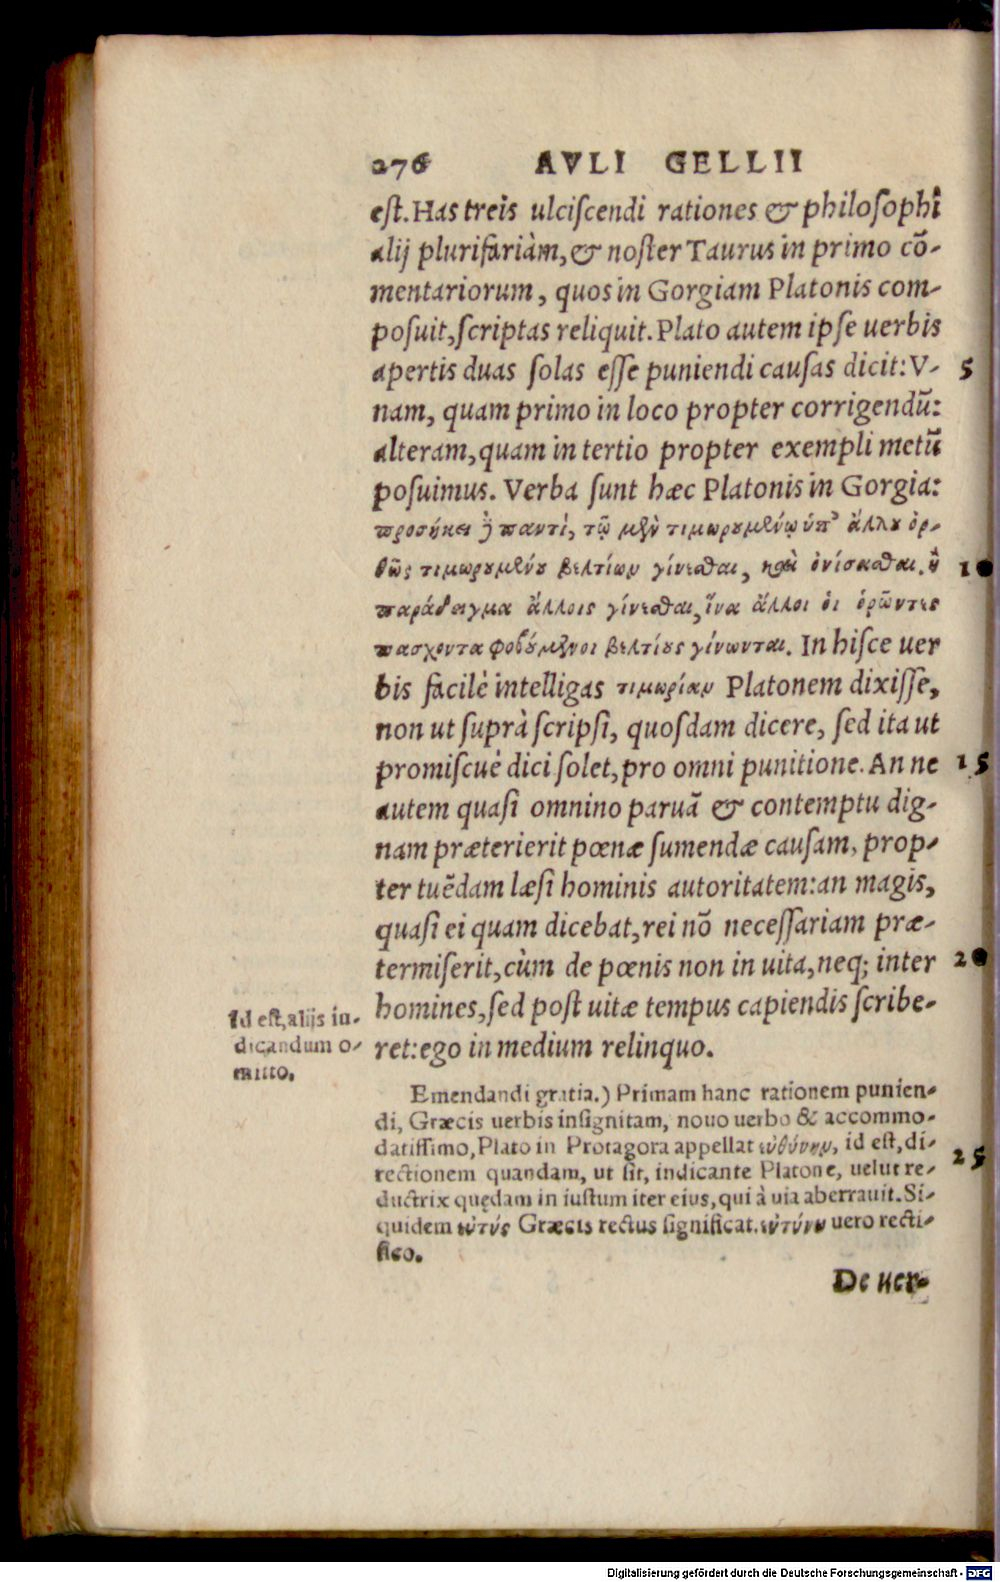 276 AVLI GELLII
est. Has treis ulciscendi rationes & philosophi
alij plurifariàm, & noster Taurus in primo cō-
mentariorum, quos in Gorgiam Platonis com-
posuit, scriptas reliquit. Plato autem ipse uerbis
apertis duas solas esse puniendi causas dicit: V- 5
nam, quam primo in loco propter corrigendū:
alteram, quam in tertio propter exempli metū
posuimus. Verba sunt hæc Platonis in Gorgia:
προσήκει ἢ παντὶ, τῷ μὲν τιμωρουμένῳ ὑπ' ἄλλου ὀρ-
θῶς τιμωρουμένου βελτίων γίνεσθαι, καὶ ὀνίσκασθαι. ἢ 10
παράδειγμα ἄλλοις γίνεσθαι, ἵνα ἄλλοι οἱ ὁρῶντες
πασχοντα φοβούμενοι βελτίους γίνωνται. In hisce uer
bis facilè intelligas τιμωρίαν Platonem dixisse,
non ut suprà scripsi, quosdam dicere, sed ita ut
promiscuè dici solet, pro omni punitione. An ne 15
autem quasi omnino paruā & contemptu dig-
nam præterierit pœnæ sumendæ causam, prop-
ter tuēdam læsi hominis autoritatem: an magis,
quasi ei quam dicebat, rei nō necessariam præ-
termiserit, cùm de pœnis non in uita, neq; inter 20
homines, sed post uitæ tempus capiendis scribe-
ret: ego in medium relinquo.
Id est, alijs iu-
dicandum o-
mitto.
Emendandi gratia.) Primam hanc rationem punien-
di, Græcis uerbis insignitam, nouo uerbo & accommo-
datissimo, Plato in Protagora appellat εὐθύνην, id est, di-
rectionem quandam, ut sit, indicante Platone, uelut re- 25
ductrix quędam in iustum iter eius, qui à uia aberrauit. Si-
quidem εὐτύς Græcis rectus significat. εὐτύνω uero recti-
fico.
De uer-
Digitalisierung gefördert durch die Deutsche Forschungsgemeinschaft - DFG